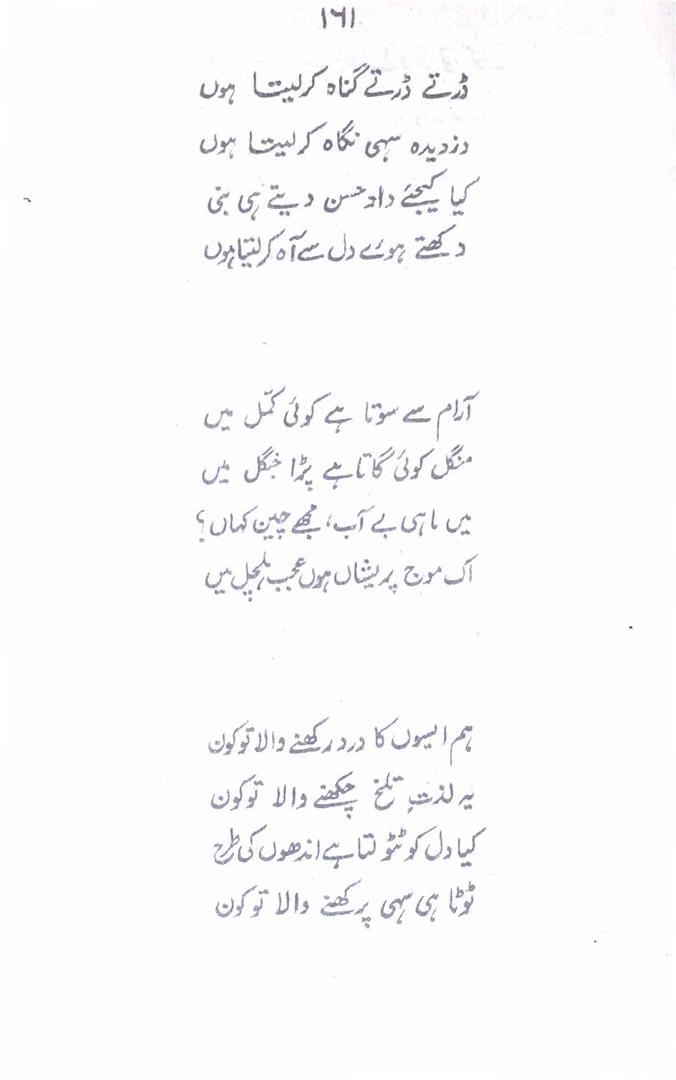 ۱۶۱
ڈرتے ڈرتے گناہ کرلیتا ہوں
دزدیدہ سہی نگاہ کرلیتا ہوں
کیا کیجئے داد حسن دیتے ہی بنی
دکھتے ہوئے دل سے آہ کرلیتا ہوں
آرام سے سوتا ہے کوئی کمّل میں
منگل کوئی گاتا ہے پڑا جنگل میں
میں ماہی بے آب، مجھے چین کہاں؟
اک موج پریشاں ہوں عجب ہلچل میں
ہم ایسوں کا درد رکھنے والا تو کون
یہ لذتِ تلخ چکھنے والا تو کون
کیا دل کو ٹٹولتا ہے اندھوں کی طرح
ٹوٹا ہی سہی پرکھنے والا تو کون